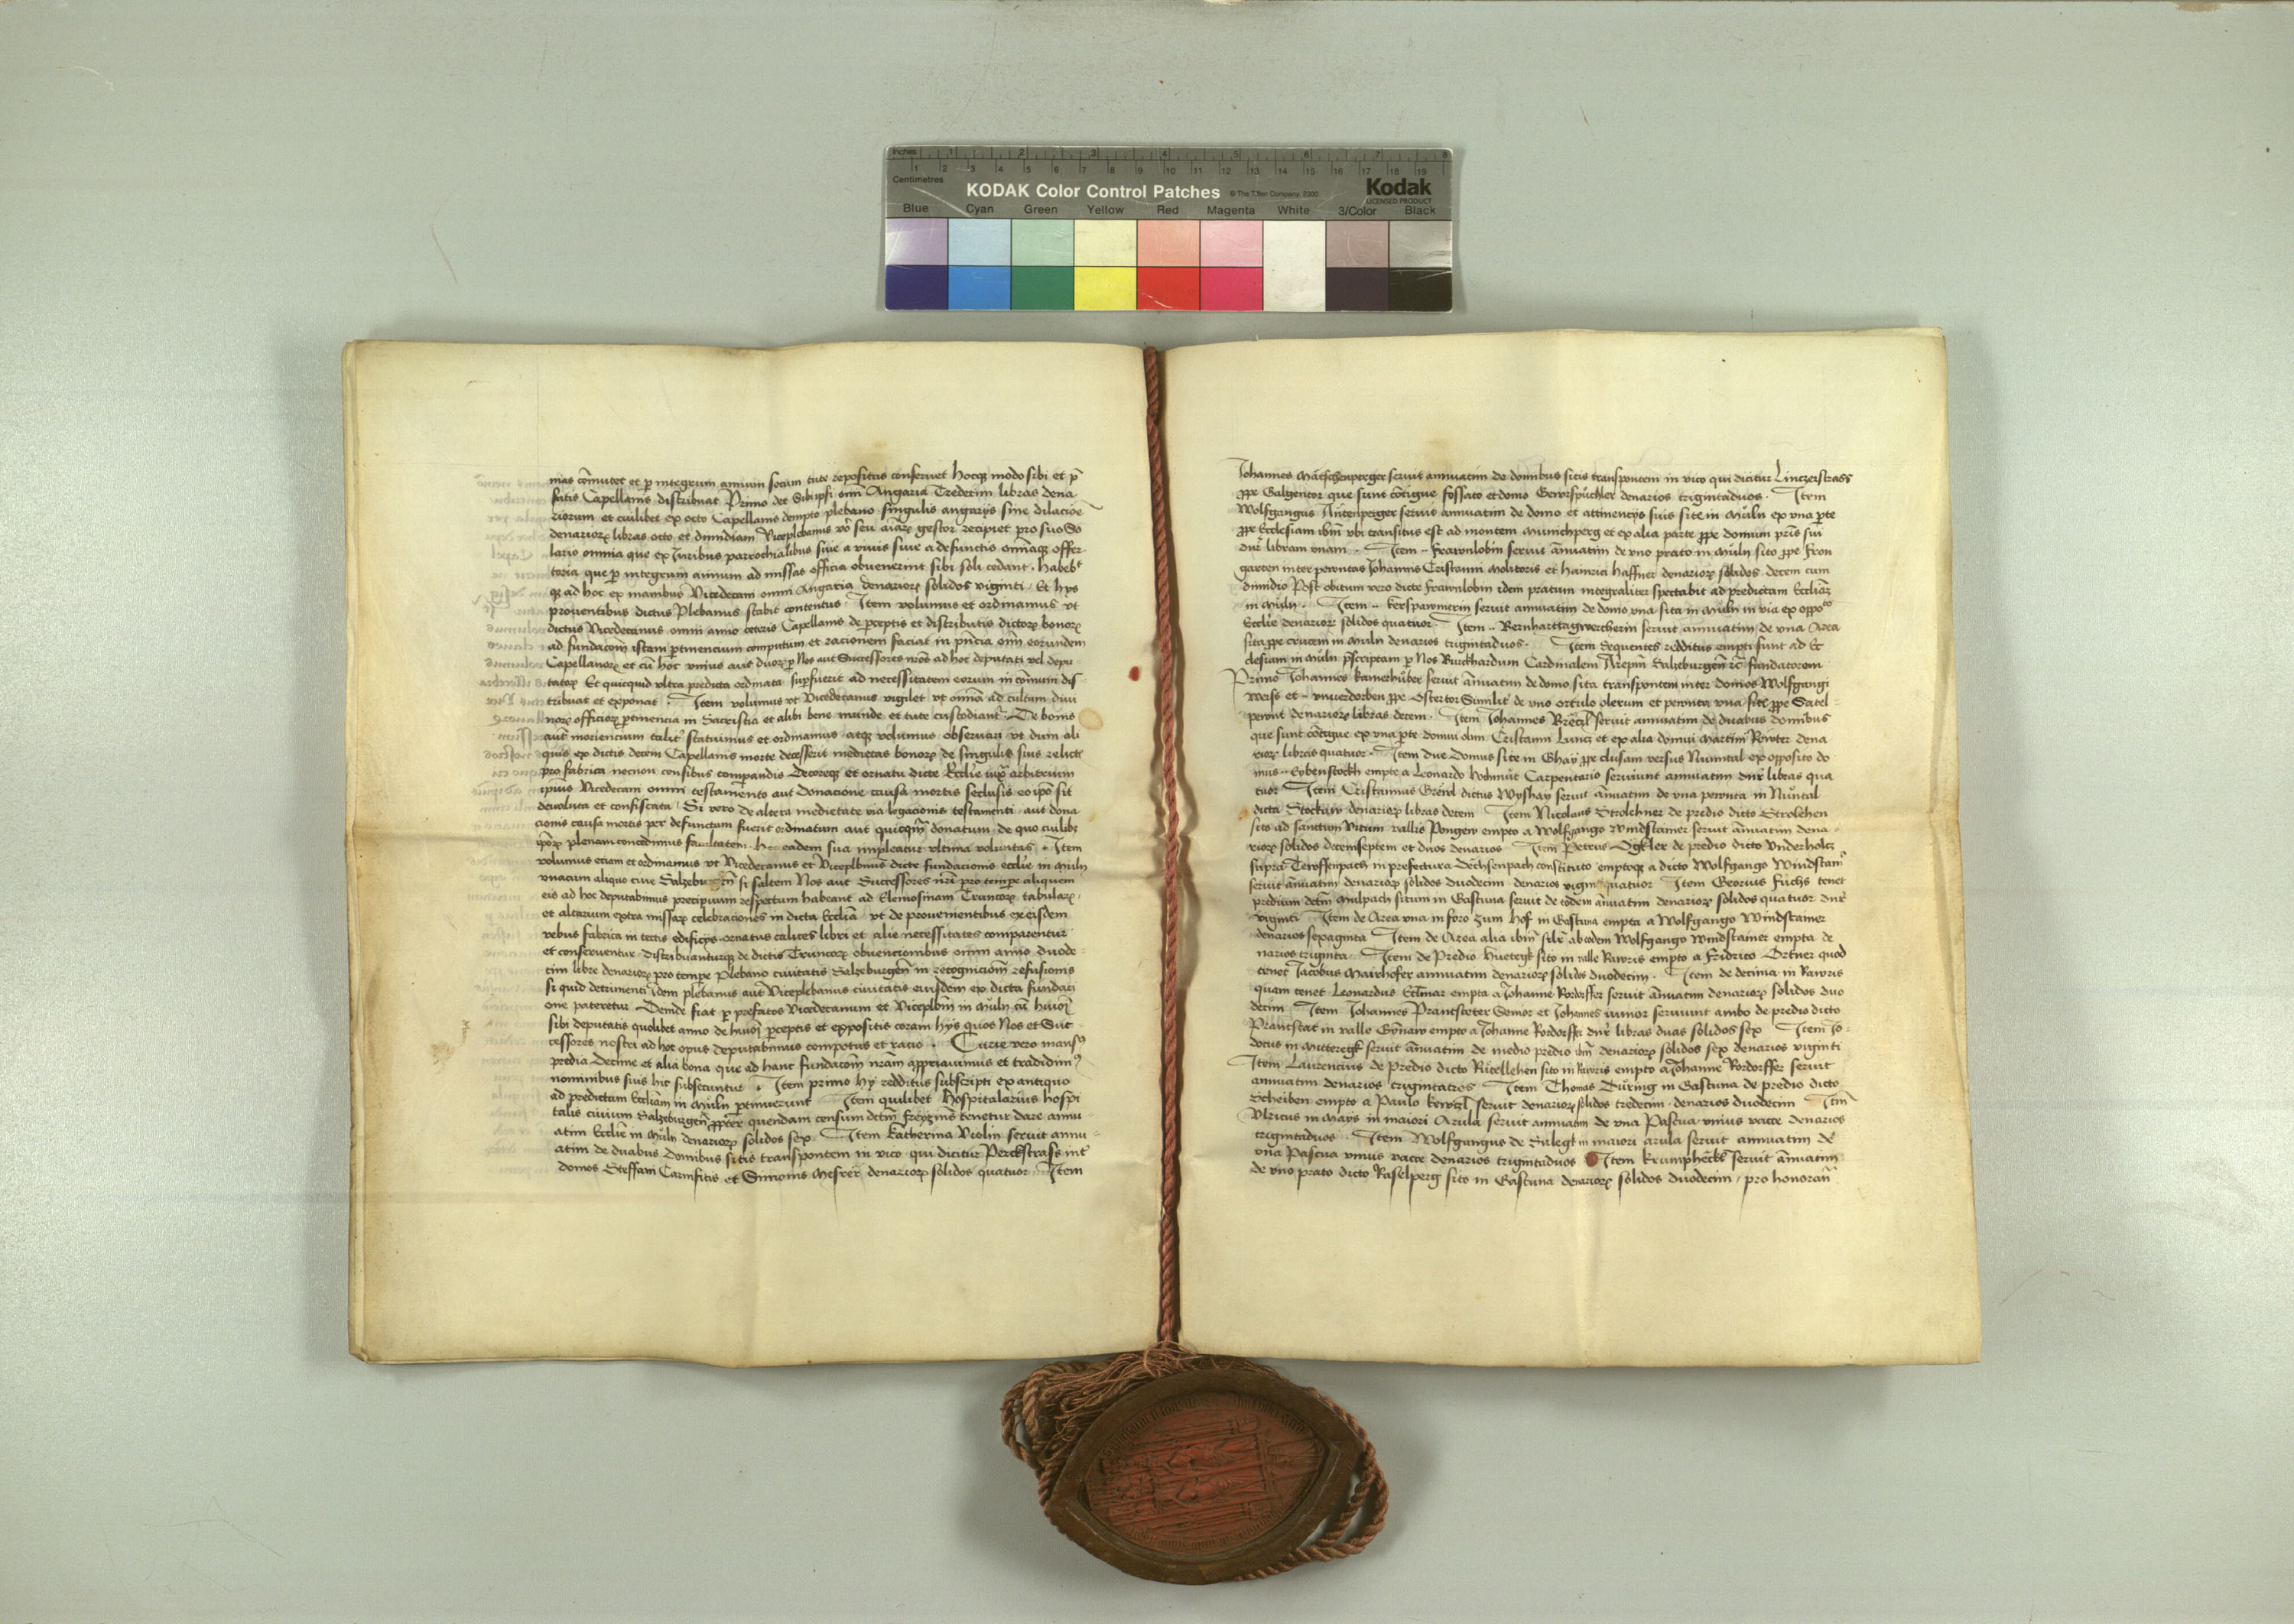 Inches 1 2 3 4 5 6 7 8
Centimetres 1 2 3 4 5 6 7 8 9 10 11 12 13 14 15 16 17 18 19
KODAK Color Control Patches © The Tiffen Company, 2000 Kodak
LICENSED PRODUCT
Blue Cyan Green Yellow Red Magenta White 3/Color Black
mas cōmutet et ꝑ integrum annum solum tute repositas conservet hocqꝫ modo sibi et p̄
fatis Capellanis distribuat Primo det Sibiipsi om̄i Angaria Tredecim libras dena
riorum et cuilibet ex octo Capellanis dempto plebano singulis angarijs sine dilacōe
denarioꝝ libras octo et dimidiam Viceplebanus v̊o seu aīaꝝ gestor recipiet pro suo So
lario omnia que ex Juribus parrochialibus siue a viuis siue a defunctis om̄iaqꝫ offer
toria que ꝑ integrum annum ad missas officia obuenerint sibi soli cedant habebt
qꝫ ad hoc ex manibus Vicedecani omni Angaria denarioꝝ solidos viginti Et hijs
prouentibus dictus Plebanus stabit contentus Item volumus et ordinamus vt
dictus Vicedecanus omni anno ceteris Capellanis de ꝑceptis et distributis dictoꝝ bonoꝝ
ad fundacōem istam ꝑtinencium computum et racionem faciat in p̄ncia om̄i eorundem
Capellanoꝝ et cū hoc vnius aut duoꝝ ꝑ Nos aut Successores nr̄os ad hoc deputati vel depu
tatoꝝ Et quicquid vltra predicta ordinata suꝑfuerit ad necessitatem eorum in cōmuni dis
tribuat et exponat Item volumus vt Vicedecanus vigilet vt om̄ia ad cultum diui
noꝝ officioꝝ ꝑtinencia in Sacristia et alibi bene munde et tute custodiantur De bonis
aut moriencium talit̄ statuimus et ordinamus atqꝫ volumus obseruari vt dum ali
quis ex dictis decem Capellanis morte decesserit medietas bonoꝝ de singulis suis relictis
pro fabrica necnon censibus comparandis Decoreqꝫ et ornatu dicte Ecclie iuxta arbitrium
ip̄ius Vicedecani omni testamento aut donacione causa mortis seclusis eo ip̄o sit
deuoluta et confiscata Si vero de altera medietate via legacionis testamenti aut dona
cionis causa mortis per defunctum fuerit ordinatum aut quicqm̄ donatum de quo cuilibꝫ
ip̄oꝝ plenam concedimus facultatem hec eadem sua impleatur vltima voluntas Item
volumus eciam et ordinamus vt Vicedecanus et Viceplb̄nus dicte fundacionis ecclie in Muln
vnacum aliquo ciue Salzeburgen̄ si saltem Nos aut Successores nr̄i pro tempe aliquem
eis ad hoc deputabimus precipuum respectum habeant ad Elemosinam Truncoꝝ tabularꝝ
et altarium extra missaꝝ celebraciones in dicta Ecclia vt de prouenientibus ex eisdem
rebus fabrica in tectis edificijs ornatus calices libri et alie necessitates comparentur
et conseruentur Distribuanturqꝫ de dictis Truncoꝝ obuencionibus omni anno duode
cim libre denarioꝝ pro tempe Plebano ciuitatis Salzeburgen̄ in recognicionem refusionis
si quid detrimenti idem plebanus aut Viceplebanus ciuitatis eiusdem ex dicta fundaci
one pateretur Deinde fiat ꝑ prefatos Vicedecanum et Viceplbm̄ in Muln cū huiꝰi
sibi deputatis quolibet anno de huiꝰi ꝑceptis et expositis coram hijs quos Nos et Suc
cessores nostri ad hoc opus deputabimus compotus et racio Curie vero mansꝰ
predia Decime et alia bona que ad hanc fundacōem nr̄am appropriauimus et tradidimꝰ
nominibus suis hic subsecuntur Item primo hij redditus subscripti ex antiquo
ad predictam Eccliam in Muln ꝑtinuerunt Item quilibet Hospitalarius hospi
talis ciuium Salzeburgen̄ propter quendam censum dc̄m Freyzins tenetur dare annu
atim Ecclie in Muln denarioꝝ solidos sex Item Katherina Violin seruit annu
atim de duabus domibus sitis transpontem in vico qui dicitur Perckstrass int̄
domos Steffani Carnificis et Simonis Mesrer denarioꝝ solidos quatuor Item
Johannes Mätschenperger seruit annuatim de domibus sitis transpontem in vico qui dicitur Linczerstrass
ꝓpe Galgentor que sunt cōtigue fossato et domo Gewrspüchler denarios trigintaduos Item
Wolfgangus Autenperger seruit annuatim de domo et attinencijs suis site in Muln ex vna ꝑte
ꝓpe Ecclesiam ibm̄ vbi transitus est ad montem Munichperg et ex alia parte ꝓpe domum pr̄is sui
dnr̄ libram vnam Item Frawnlobin seruit ānuatim de vno prato in Muln sito ꝓpe Fron
garten inter pewntas Johannis Cristanni Molitoris et Hainrici Haffner denarioꝝ solidos decem cum
dimidio Post obitum vero dicte Frawnlobin idem pratum integraliter spectabit ad predictam Eccliaꝫ
in Muln Item Kerspawmerin seruit annuatim de domo vna sita in Muln in via ex oppoto
Ecclie denarioꝝ solidos quatuor Item Bernharttagwercherin seruit annuatim de vna Area
sita ꝓpe crucem in Muln denarios trigintaduos Item Sequentes redditus empti sunt ad Ec
clesiam in Muln p̄scriptam ꝑ Nos Burckhardum Cardinalem Arepm̄ Salzeburgen̄ ꝛc̄ fundatorem
Primo Johannes Kamerhuber seruit ānuatim de domo sita transpontem inter domos Wolfgangi
Weiss et vnuerdorben ꝓpe Ostertor Similit̄ de vno ortulo olerum et pewnta vna site ꝓpe Satel
pewnt denarioꝝ libras decem Item Johannes Breczl seruit annuatim de duabus domibus
que sunt cōtigue ex vna ꝑte domui olim Cristanni Luncz et ex alia domui Martini Rewter dena
rioꝝ libras quatuor Item due Domus site in Ghay ꝓpe clusam versus Nunntal ex opposito do
mus Eybenstockh empte a Leonardo Hochmut Carpentario seruiunt annuatim dnr̄ libras qua
tuor Item Cristannus Grewl dictus Wyshay seruit ānuatim de vna pewnta in Nuntal
dicta Stockaw denarioꝝ libras decem Item Nicolaus Strolchner de predio dicto Strolehen
sito ad sanctum Vitum vallis Pongew empto a Wolfgango Windstamer seruit ānuatim dena
rioꝝ solidos decemseptem et duos denarios Item Petrus Ogkler de predio dicto Vnderholcz
supra Teroffenpach in prefectura Dechsenpach constituto emptoqꝫ a dicto Wolfgango Windstam̄
seruit ānuatim denarioꝝ solidos duodecim denarios vigintiquatuor Item Georius Fuchs tenet
predium dc̄m Mulpach situm in Gastuna seruit de eodem ānuatim denarioꝝ solidos quatuor dnr̄
viginti Item de Area vna in foro zum Hof in Gastuna empta a Wolfgango Windstamer
denarios sexaginta Item de Area alia ibm̄ silr̄ ab eodem Wolfgango Windstamer empta de
narios triginta Item de Predio Huetegk sito in valle Rawris empto a Fridrico Ortner quod
tenet Jacobus Mairhofer annuatim denarioꝝ solidos duodecim Item de decima in Rawris
quam tenet Leonardus empta a Johanne Rordorffer seruit ānuatim denarioꝝ solidos duo
decim Item Johannes Prantsteter Senior et Johannes iunior seruiunt ambo de predio dicto
Prantstat in valle empto a Johanne Rordorffer dnr̄ libras duas solidos sex Item Jo
docus in Mitteregk seruit ānuatim de medio predio ibm̄ denarioꝝ solidos sex denarios viginti
Item Laurencius de Predio dicto Rutellehen sito in Rawris empto a Johanne Rordorffer seruit
annuatim denarios trigintatres Item Thomas Düring in Gastuna de predio dicto
Scheiben empto a Paulo Kewczl seruit denarioꝝ solidos tredecim denarios duodecim Itm̄
Vlricus in Mays in maiori Arula seruit annuatim de vna Pascua vnius vacce denarios
trigintaduos Item Wolfgangus de Sulegk in maiori arula seruit annuatim de
vna Pascua vnius vacce denarios trigintaduos Item Krumpheckl seruit ānuatim
de vno prato dicto Raselperg sito in Gastuna denarioꝝ solidos duodecim pro honoran̄